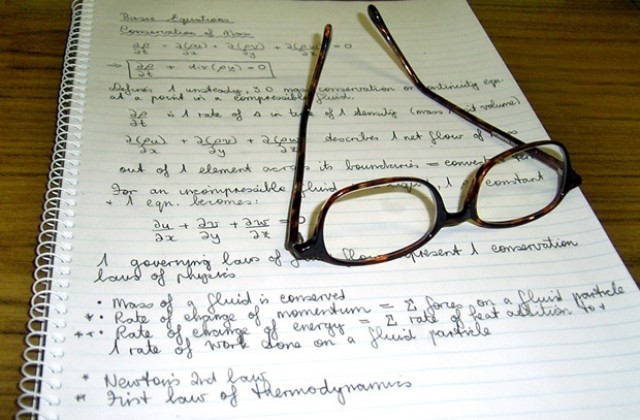 Basic Equations
Conservation of Mass
∂ρ/∂t + ∂(ρu)/∂x + ∂(ρv)/∂y + ∂(ρw)/∂z = 0
⇒ ∂ρ/∂t + div(ρu) = 0
Defines 1 unsteady, 3D mass conservation or continuity eqn.
at a point in a compressible fluid.
∂ρ/∂t is 1 rate of Δ in time of 1 density (mass volume)
∂(ρu)/∂x + ∂(ρv)/∂y + ∂(ρw)/∂z describes 1 net flow of
out of 1 element across its boundaries =
For an incompressible fluid 1 constant
+ 1 eqn. becomes:
∂u/∂x + ∂v/∂y + ∂w/∂z = 0
1 governing laws of flow represent 1 conservation
laws of physics
• Mass of a fluid is conserved
* • Rate of change of momentum = Σ forces on a fluid particle
** • Rate of change of energy = Σ rate of heat addition to +
1 rate of work done on a fluid particle
* Newton's 2nd law
** First law of thermodynamics